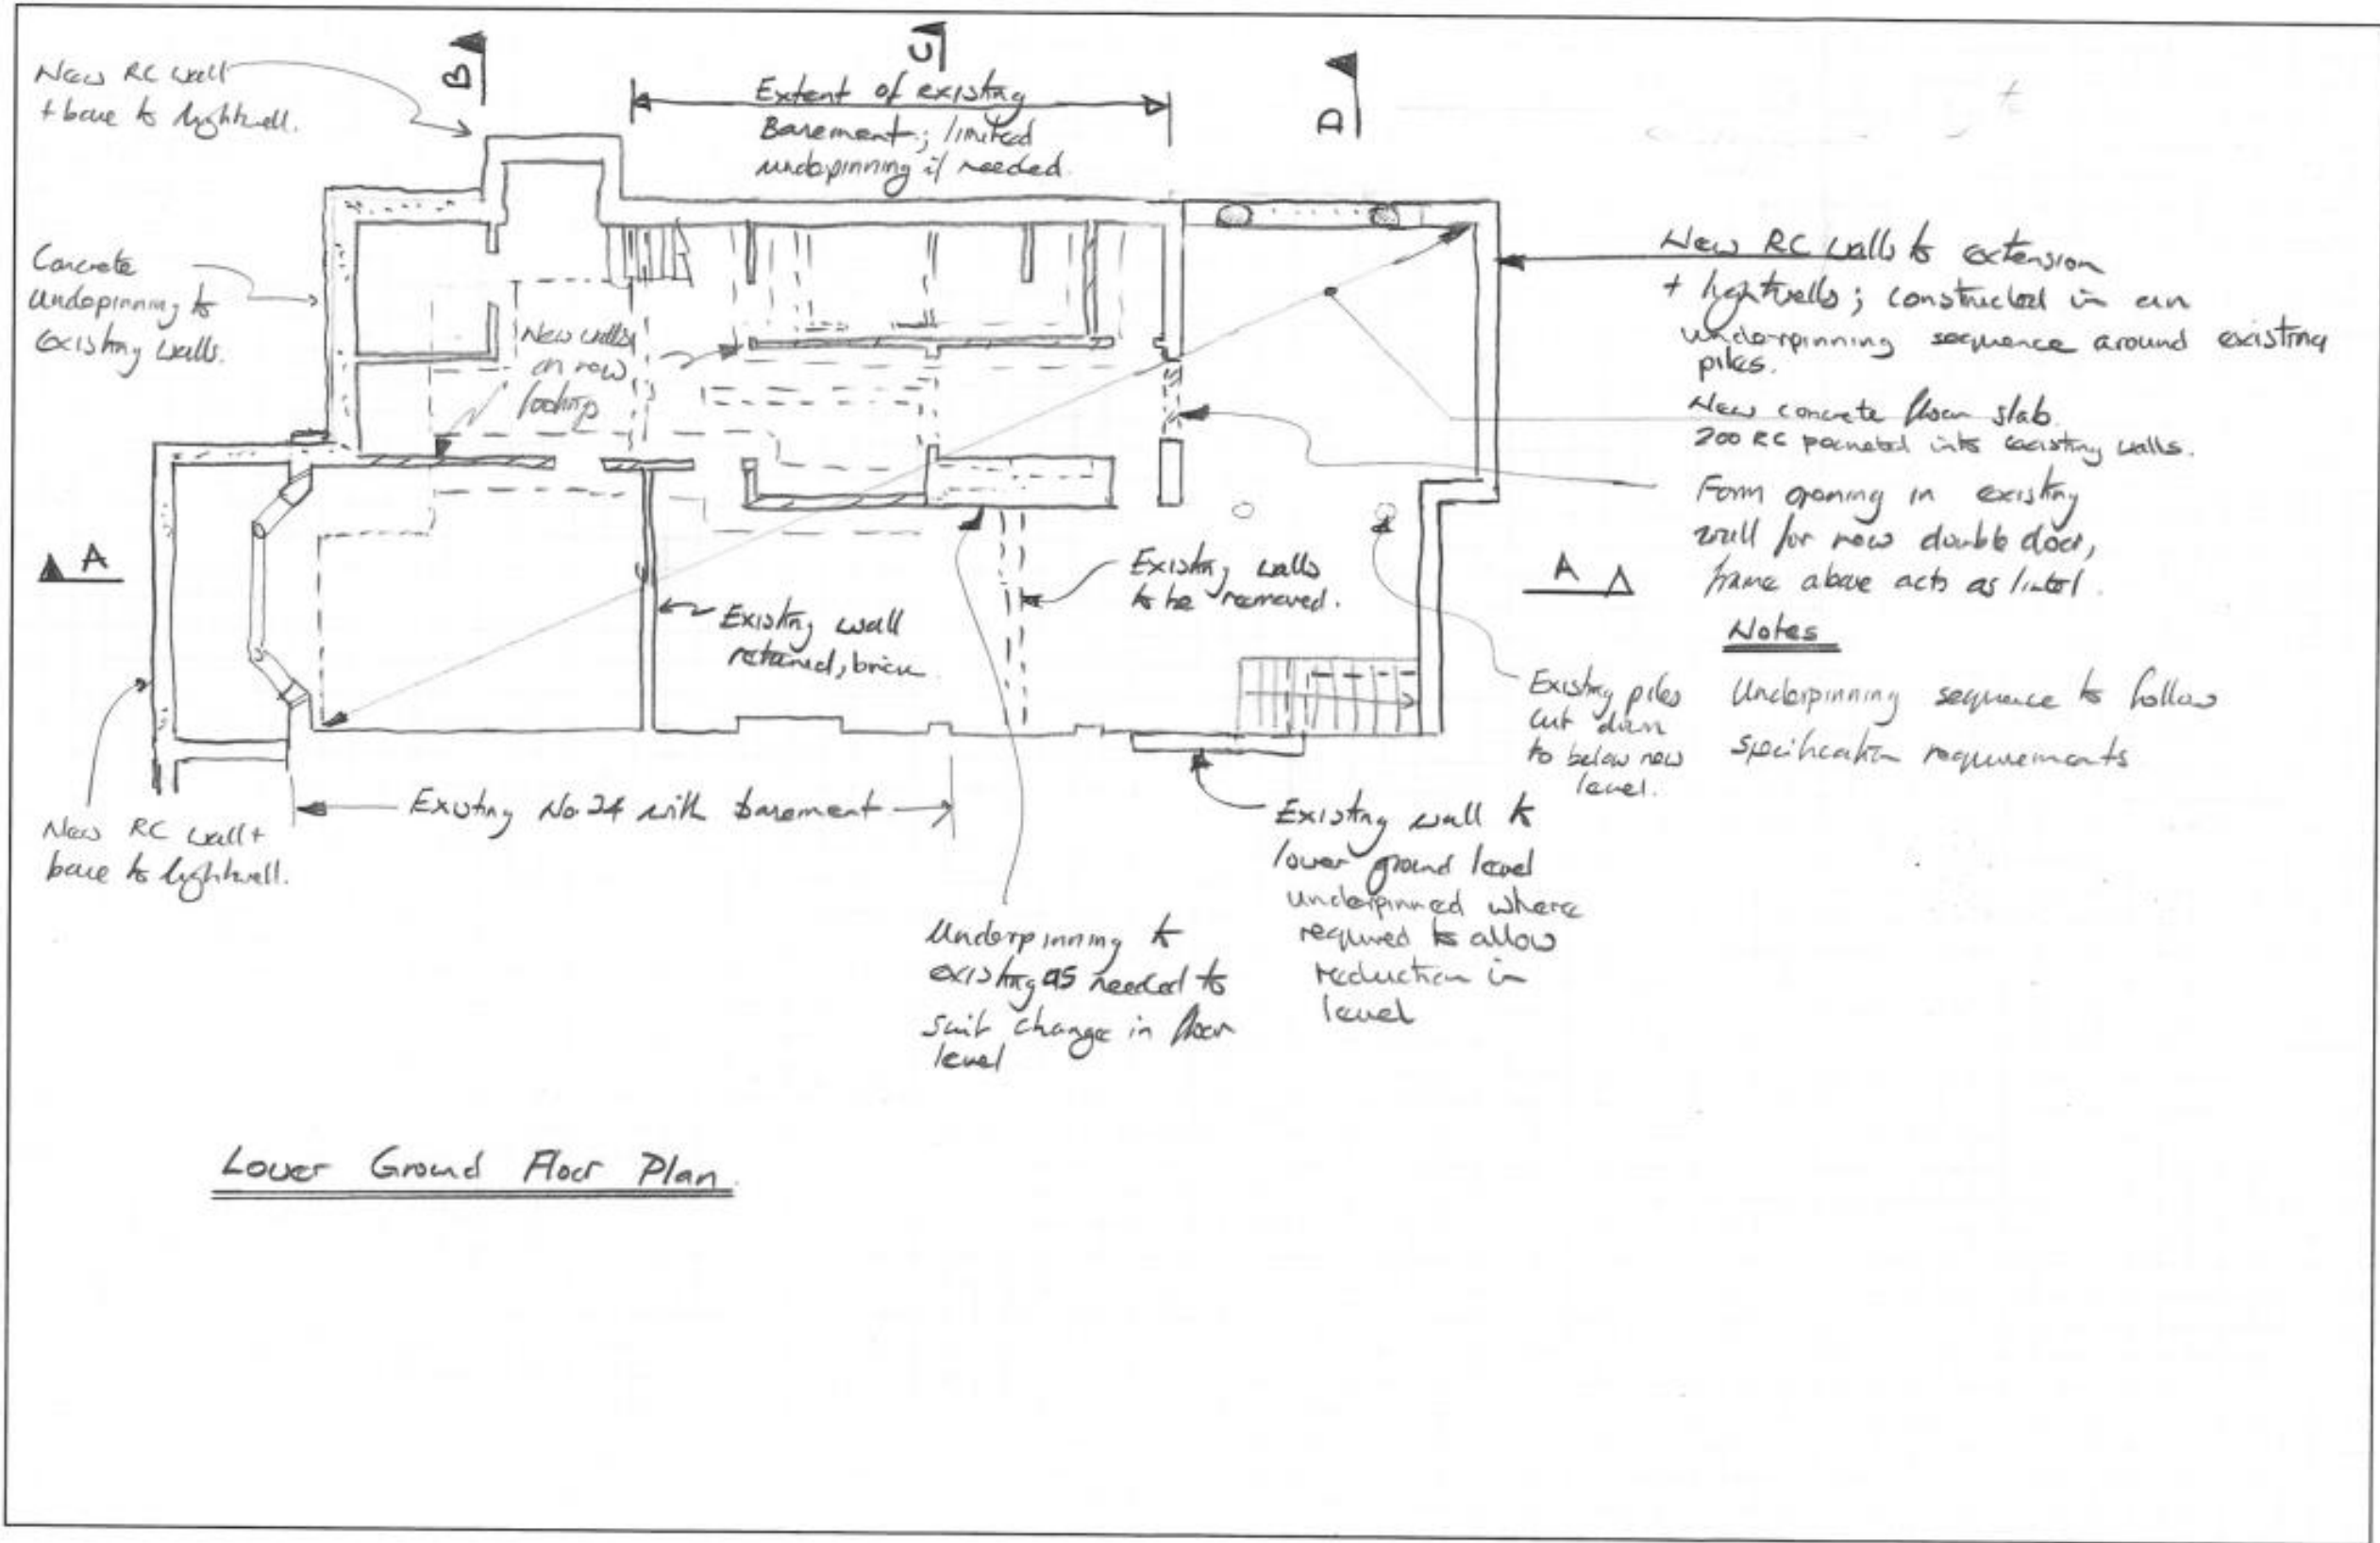 New RC wall
+ base to lightwell.
B
C
D
Extent of existing
Basement; limited
underpinning if needed.
Concrete
Underpinning to
existing walls.
New walls
on new
footing
New RC walls to extension
+ lightwells; constructed in an
underpinning sequence around existing
piles.
New concrete floor slab.
200 RC pocketed into existing walls.
Form opening in existing
wall for new double door,
frame above acts as lintel.
A
A
Existing walls
to be removed.
Existing wall
retained, brick
Notes
Underpinning sequence to follow
specification requirements
Existing piles
cut down
to below new
level.
Existing No 24 with basement
New RC wall +
base to lightwell.
Existing wall to
lower ground level
underpinned where
required to allow
reduction in
level
Underpinning to
existing as needed to
suit change in floor
level
Lower Ground Floor Plan.